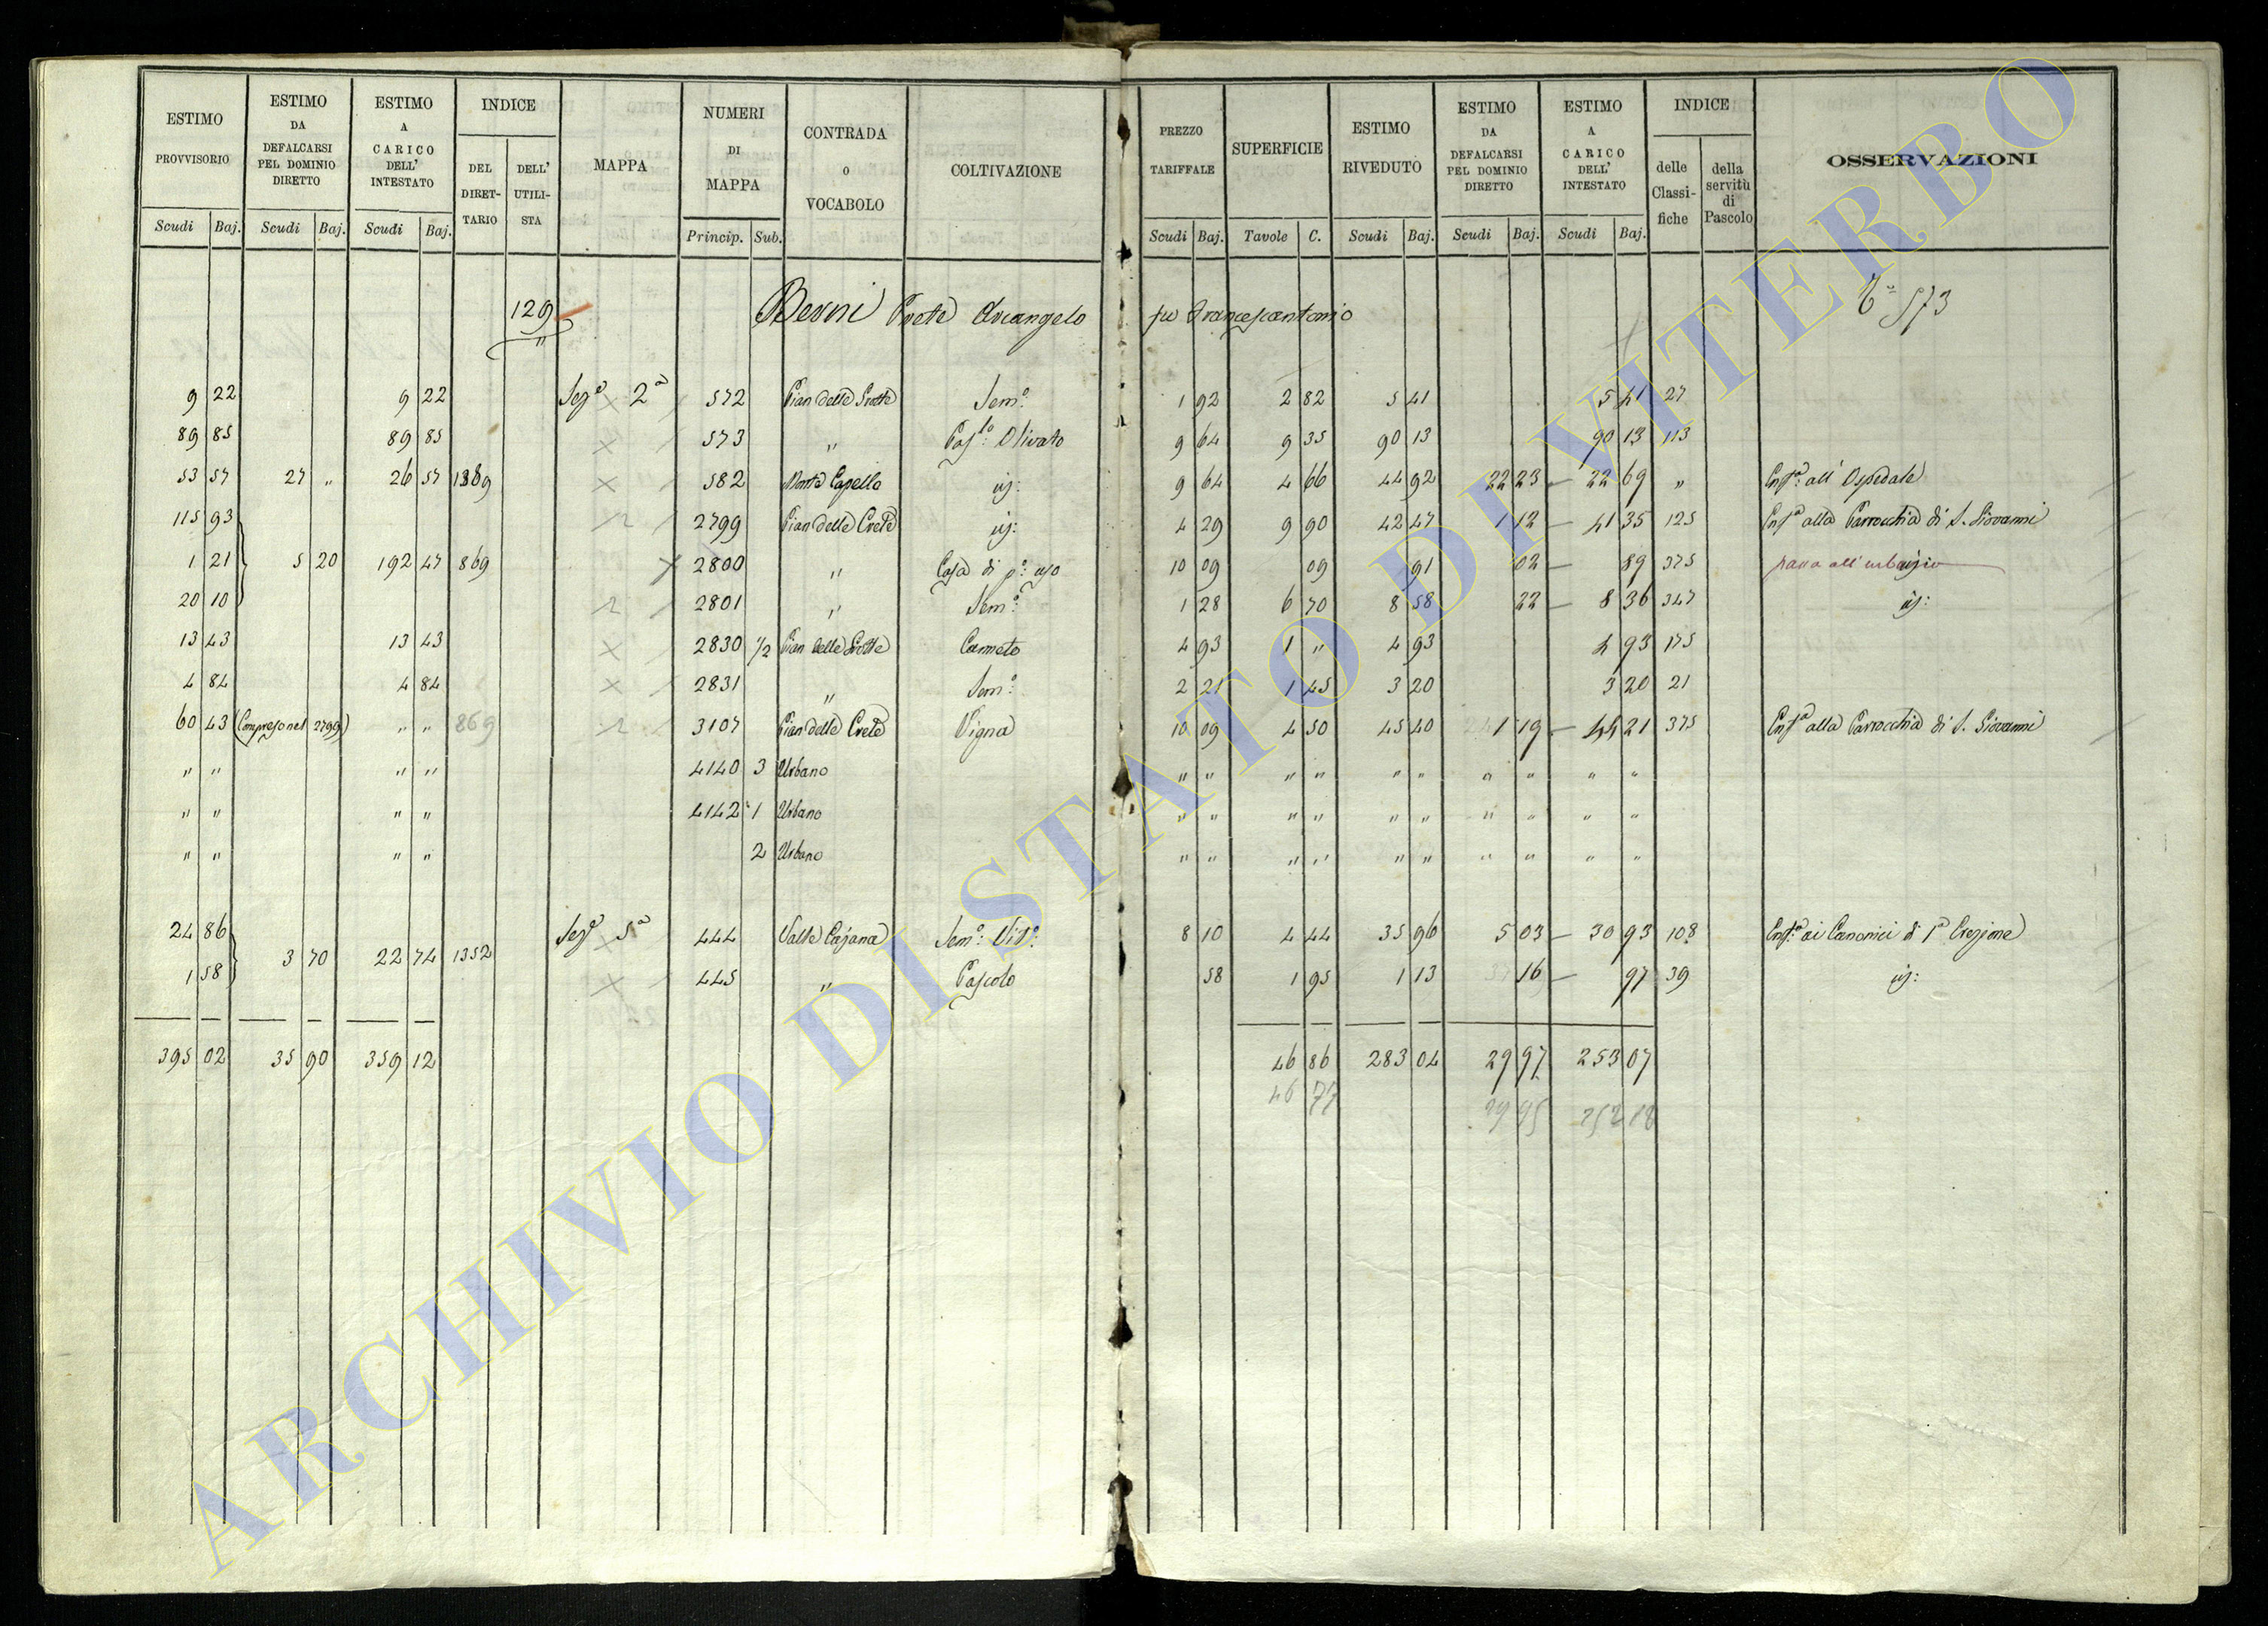 ESTIMO PROVVISORIO | ESTIMO DA DEFALCARSI PEL DOMINIO DIRETTO | ESTIMO A CARICO DELL' INTESTATO | INDICE DEL DIRETTARIO | DELL' UTILISTA | MAPPA | NUMERI DI MAPPA | CONTRADA o VOCABOLO | COLTIVAZIONE | PREZZO TARIFFALE | SUPERFICIE | ESTIMO RIVEDUTO | ESTIMO DA DEFALCARSI PEL DOMINIO DIRETTO | ESTIMO A CARICO DELL' INTESTATO | INDICE delle Classifiche | della servitù di Pascolo | OSSERVAZIONI
Scudi Baj. Scudi Baj. Scudi Baj. Princip. Sub. Scudi Baj. Tavole C. Scudi Baj. Scudi Baj. Scudi Baj.
129 Berni Prete Arcangelo fu Francescantonio 573
9 22 9 22 Sez.e 2a 572 Pian delle Grotte Sem.o 1 92 2 82 5 41 5 41 27
89 85 89 85 573 " Pas.lo Olivato 9 64 9 35 90 13 90 13 113
53 57 27 " 26 57 1389 582 Monte Capello id: 9 64 4 66 44 92 22 23 22 69 " Enf.a all' Ospedale
115 93 2799 Pian delle Crete id: 4 29 9 90 42 47 1 12 41 35 125 Enf.a alla Parrocchia di S. Giovanni
1 21 5 20 192 47 869 2800 " Casa di p.o uso 10 09 09 91 02 89 375 passa all' urbano
20 10 2801 " Sem.o 1 28 6 70 8 58 22 8 36 347 id:
13 43 13 43 2830 1/2 Pian delle Grotte Canneto 4 93 1 " 4 93 4 93 175
4 84 4 84 2831 " Sem.o 2 21 1 45 3 20 3 20 21
60 43 (Compreso nel 2799) " " 869 3107 Pian delle Crete Vigna 10 09 4 50 45 40 1 19 44 21 375 Enf.a alla Parrocchia di S. Giovanni
" " " " 4140 3 Urbano " " " " " " " " " "
" " " " 4142 1 Urbano " " " " " " " " " "
" " " " 2 Urbano " " " " " " " " " "
24 86 Sez.e 5a 444 Valle Cajana Sem.o Vit.o 8 10 4 44 35 96 5 03 30 93 108 Enf.a ai Canonici di 1a Erezione
3 70 22 74 1352
1 58 445 " Pascolo 58 1 95 1 13 16 97 39 id:
395 02 35 90 359 12 46 86 283 04 29 97 253 07
46 77 29 95 252 18
ARCHIVIO DI STATO DI VITERBO